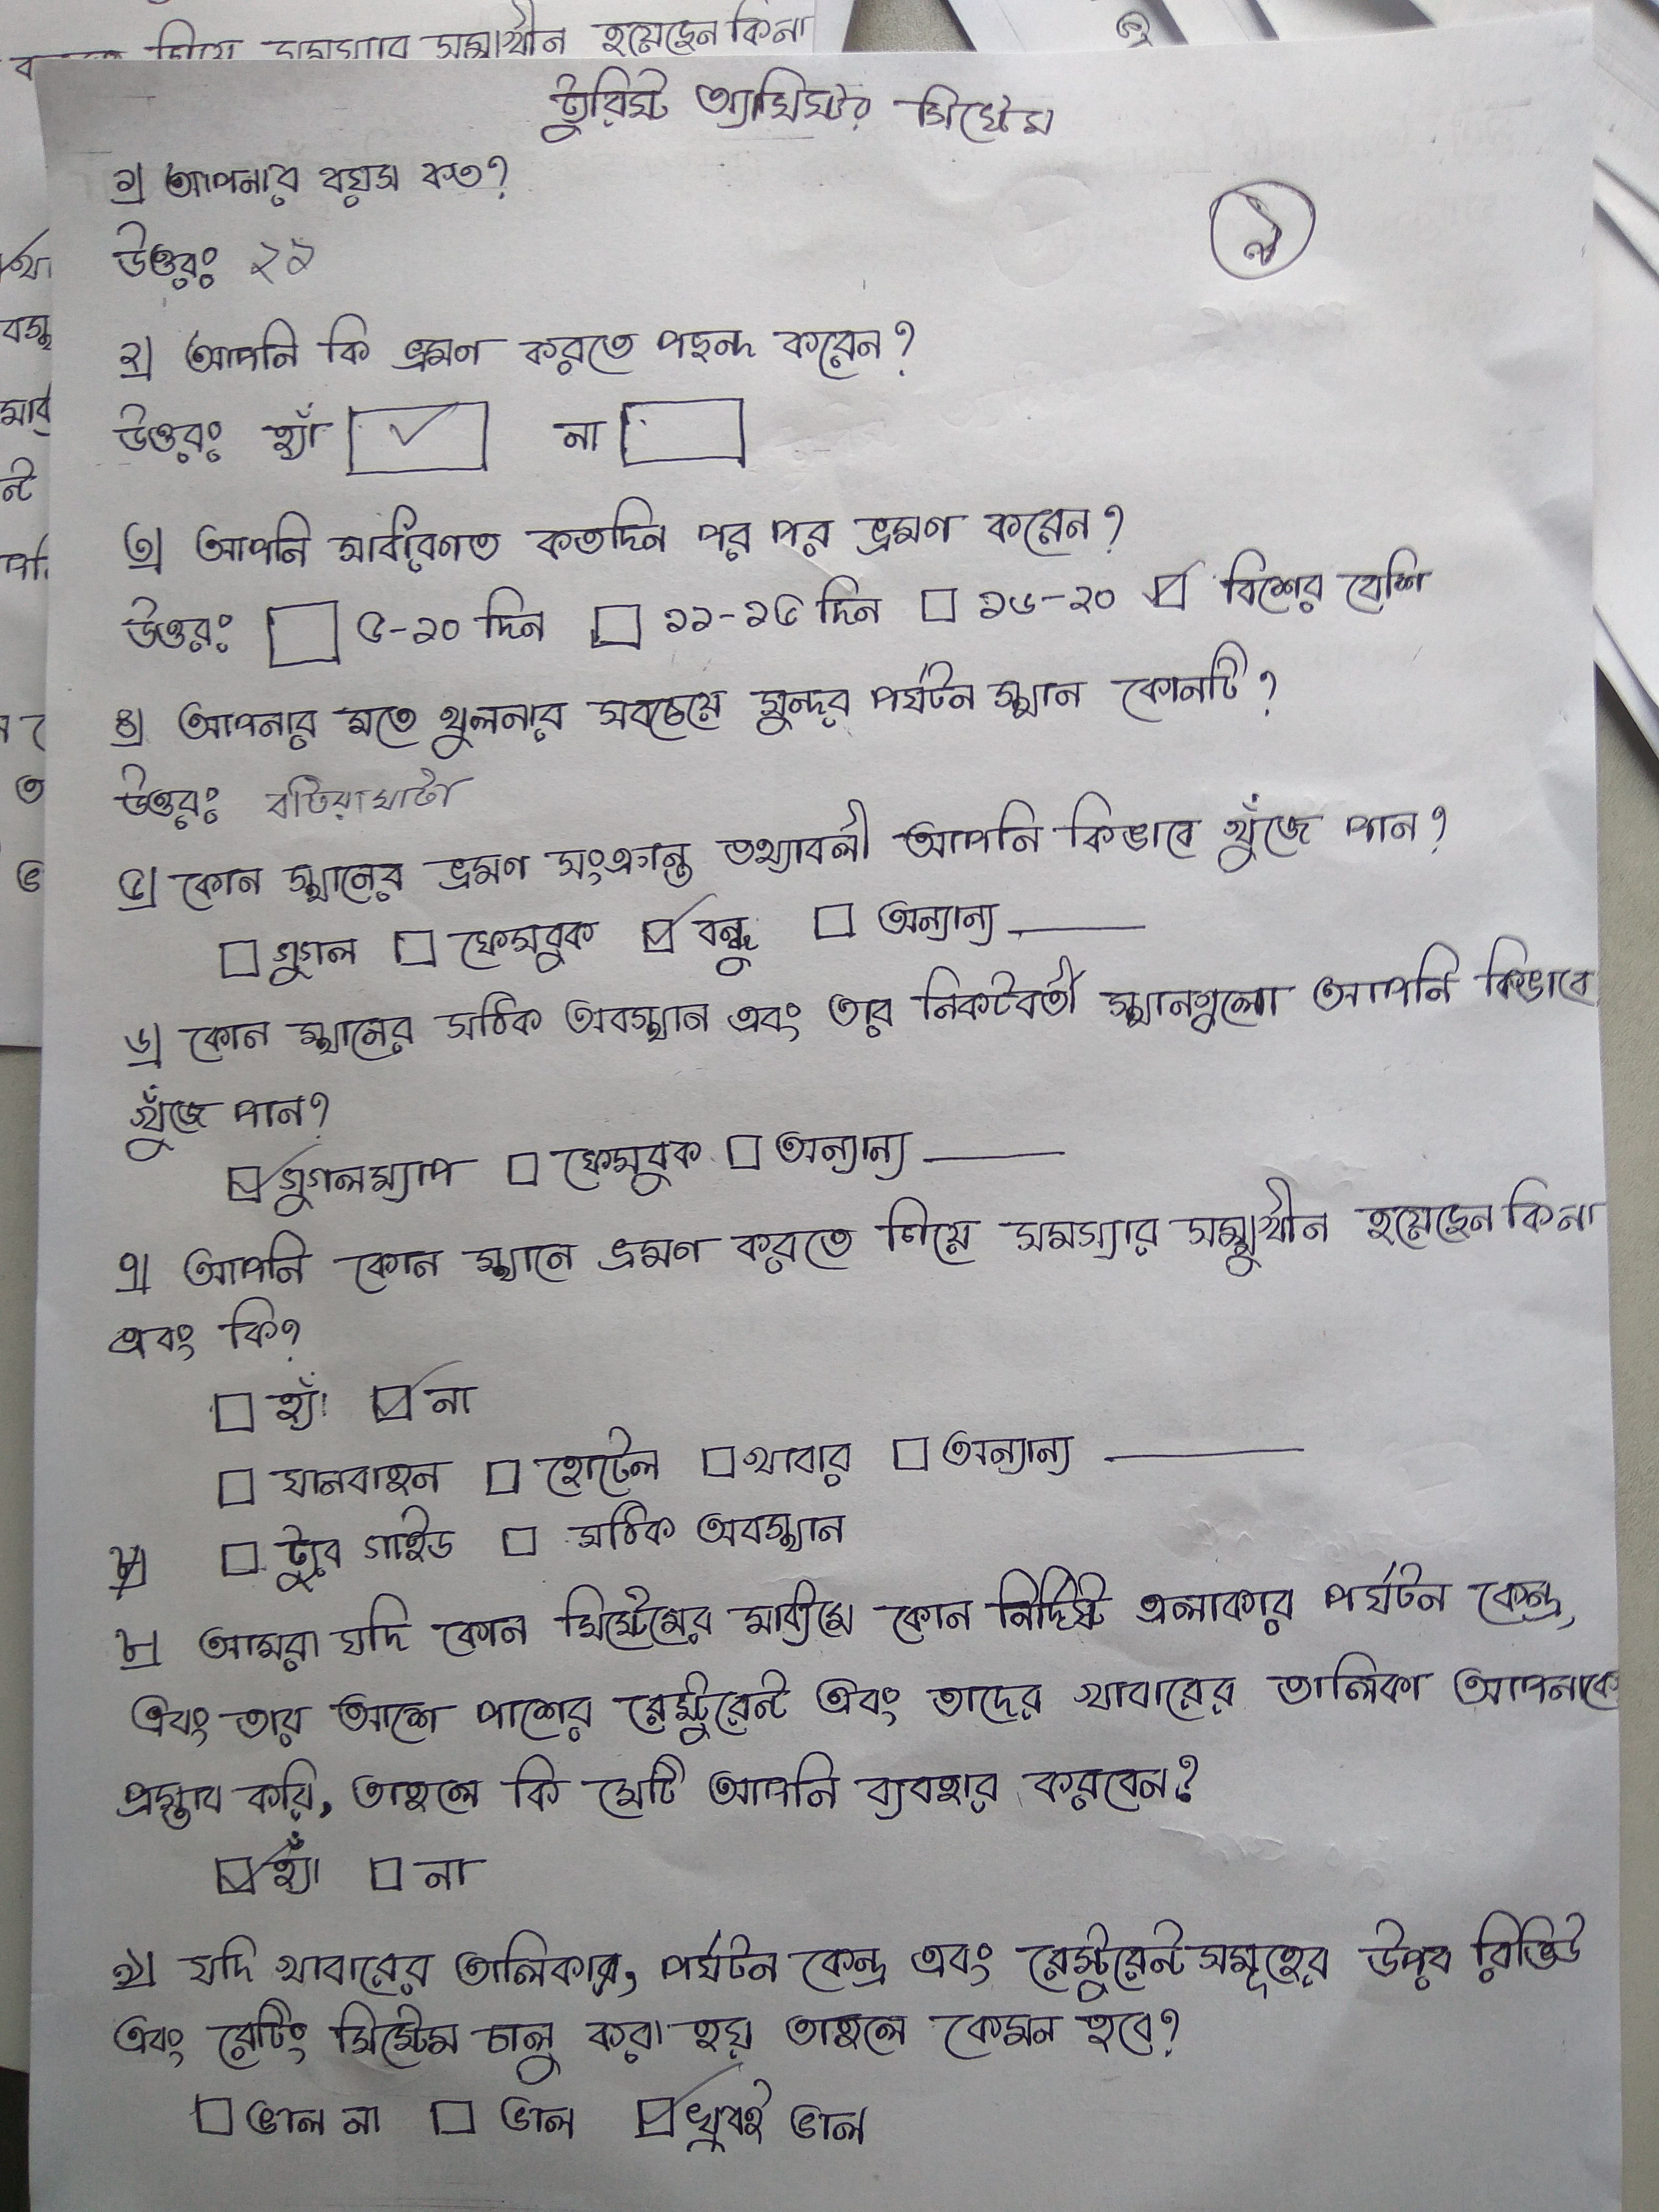 বলতে গিয়ে সমস্যার সম্মুখীন হয়েছেন কিনা
টুরিস্ট অ্যাসিস্টর সিস্টেম
১) আপনার বয়স কত?
৯
উত্তরঃ ২১
২) আপনি কি ভ্রমণ করতে পছন্দ করেন?
উত্তরঃ হ্যাঁ ✓ না
৩) আপনি সাধারণত কতদিন পর পর ভ্রমণ করেন?
উত্তরঃ ৫-১০ দিন ১১-১৫ দিন ১৬-২০ ✓ বিশের বেশি
৪) আপনার মতে খুলনার সবচেয়ে সুন্দর পর্যটন স্থান কোনটি?
উত্তরঃ বটিয়াঘাটা
৫) কোন স্থানের ভ্রমণ সংক্রান্ত তথ্যাবলী আপনি কিভাবে খুঁজে পান?
গুগল ফেসবুক ✓ বন্ধু অন্যান্য ____
৬) কোন স্থানের সঠিক অবস্থান এবং তার নিকটবর্তী স্থানগুলো আপনি কিভাবে
খুঁজে পান?
✓ গুগলম্যাপ ফেসবুক অন্যান্য ____
৭) আপনি কোন স্থানে ভ্রমণ করতে গিয়ে সমস্যার সম্মুখীন হয়েছেন কিনা
এবং কি?
হ্যাঁ ✓ না
যানবাহন হোটেল খাবার অন্যান্য ____
ট্যুর গাইড সঠিক অবস্থান
৮) আমরা যদি কোন সিস্টেমের মাধ্যমে কোন নির্দিষ্ট এলাকার পর্যটন কেন্দ্র,
এবং তার আশে পাশের রেস্টুরেন্ট এবং তাদের খাবারের তালিকা আপনাকে
প্রস্তাব করি, তাহলে কি সেটি আপনি ব্যবহার করবেন?
✓ হ্যাঁ না
৯) যদি খাবারের তালিকার, পর্যটন কেন্দ্র এবং রেস্টুরেন্ট সমূহের উপর রিভিউ
এবং রেটিং সিস্টেম চালু করা হয় তাহলে কেমন হবে?
ভাল না ভাল ✓ খুবই ভাল